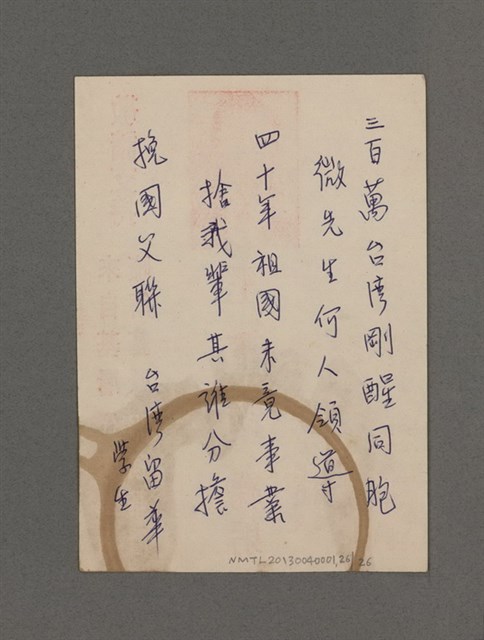 三百萬台湾剛醒同胞
微先生何人領導
四十年祖國未竟事業
捨我輩其誰分擔
挽國父聯 台湾留華
學生
NMTL20130040001,26/26